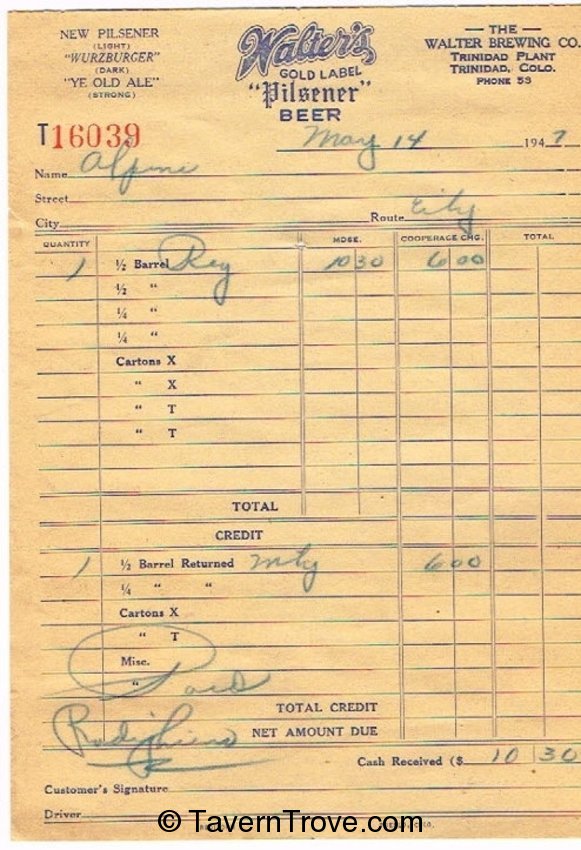 NEW PILSENER
(LIGHT)
"WURZBURGER"
(DARK)
"YE OLD ALE"
(STRONG)
Walter's
GOLD LABEL
"Pilsener"
BEER
— THE —
WALTER BREWING CO.
TRINIDAD PLANT
TRINIDAD, COLO.
PHONE 53
T16039
May 14 1947
Name Alpine
Street
City Route City
QUANTITY MDSE. COOPERAGE CHG. TOTAL
1 ½ Barrel Reg 10 30 6 00
½ "
¼ "
¼ "
Cartons X
" X
" T
" T
TOTAL
CREDIT
1 ½ Barrel Returned mty 6 00
¼ " "
Cartons X
" T
Misc.
" Paid
TOTAL CREDIT
NET AMOUNT DUE
Cash Received ($ 10 30
Customer's Signature
Driver
© TavernTrove.com